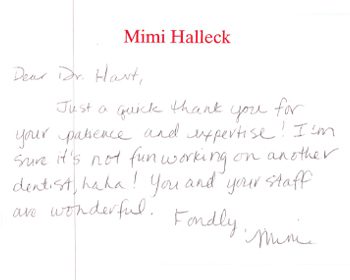 Mimi Halleck
Dear Dr. Hart,
Just a quick thank you for
your patience and expertise! I'm
sure it's not fun working on another
dentist, haha! You and your staff
are wonderful.
Fondly,
Mimi